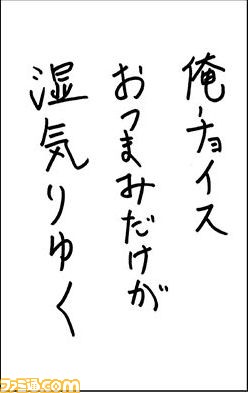 俺チョイス
おつまみだけが
湿気りゆく
ファミ通.com